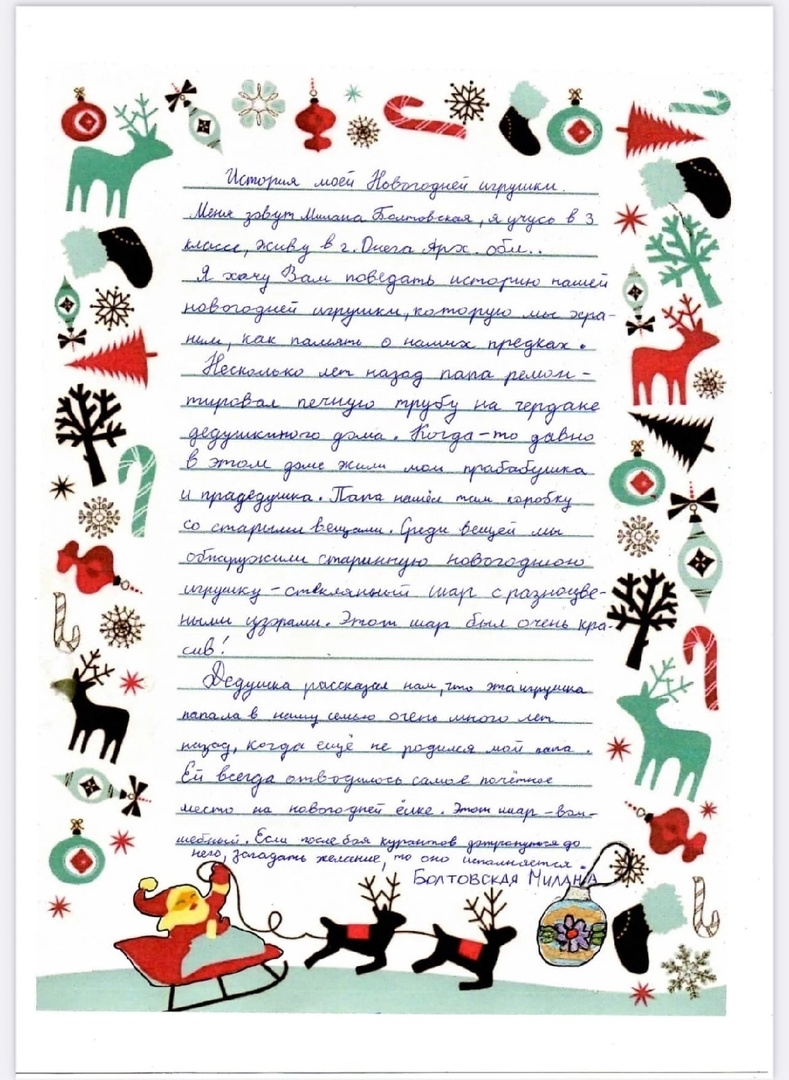 История моей Новогодней игрушки.
Меня зовут Милана Болтовская, я учусь в 3
классе, живу в г. Онега Арх. обл..
Я хочу Вам поведать историю нашей
новогодней игрушки, которую мы хра-
ним, как память о наших предках.
Несколько лет назад папа ремон-
тировал печную трубу на чердаке
дедушкиного дома. Когда-то давно
в этом доме жили мои прабабушка
и прадедушка. Папа нашёл там коробку
со старыми вещами. Среди вещей мы
обнаружили старинную новогоднюю
игрушку - стеклянный шар с разноцве-
ными узорами. Этот шар был очень кра-
сив!
Дедушка рассказал нам, что эта игрушка
папала в нашу семью очень много лет
назад, когда ещё не родился мой папа.
Ей всегда отводилось самое почётное
место на новогодней ёлке. Этот шар - вол-
шебный. Если после боя курантов дотронуться до
него, загадать желание, то оно исполняется.
БОЛТОВСКАЯ МИЛАНА